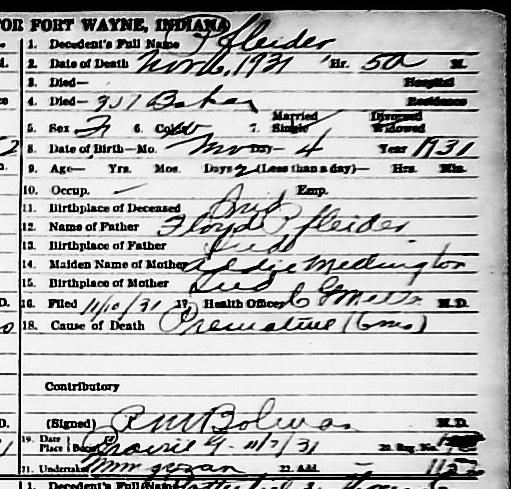 FOR FORT WAYNE, INDIANA
1. Decedent's Full Name Pfleider
2. Date of Death Nov 6, 1931 Hr. 5a M.
3. Died— Hospital
4. Died— 927 Baker Residence
5. Sex F 6. Col. W 7. Married Single Divorced Widowed
8. Date of Birth—Mo. Nov Day— 4 Year 1931
9. Age— Yrs. Mos. Days 2 (Less than a day)— Hrs. Min.
10. Occup. — Emp.
11. Birthplace of Deceased Ind
12. Name of Father Floyd Pfleider
13. Birthplace of Father Ind
14. Maiden Name of Mother Addie Medlington
15. Birthplace of Mother Ind
16. Filed 11/10/31 17. Health Officer M.D.
18. Cause of Death Premature (6mo)
Contributory
(Signed) M.D.
19. Date Place Prairie G- 11/7/31 20. Reg. No.
21. Undertaker 22. Add. — 1152
1. Decedent's Full Name